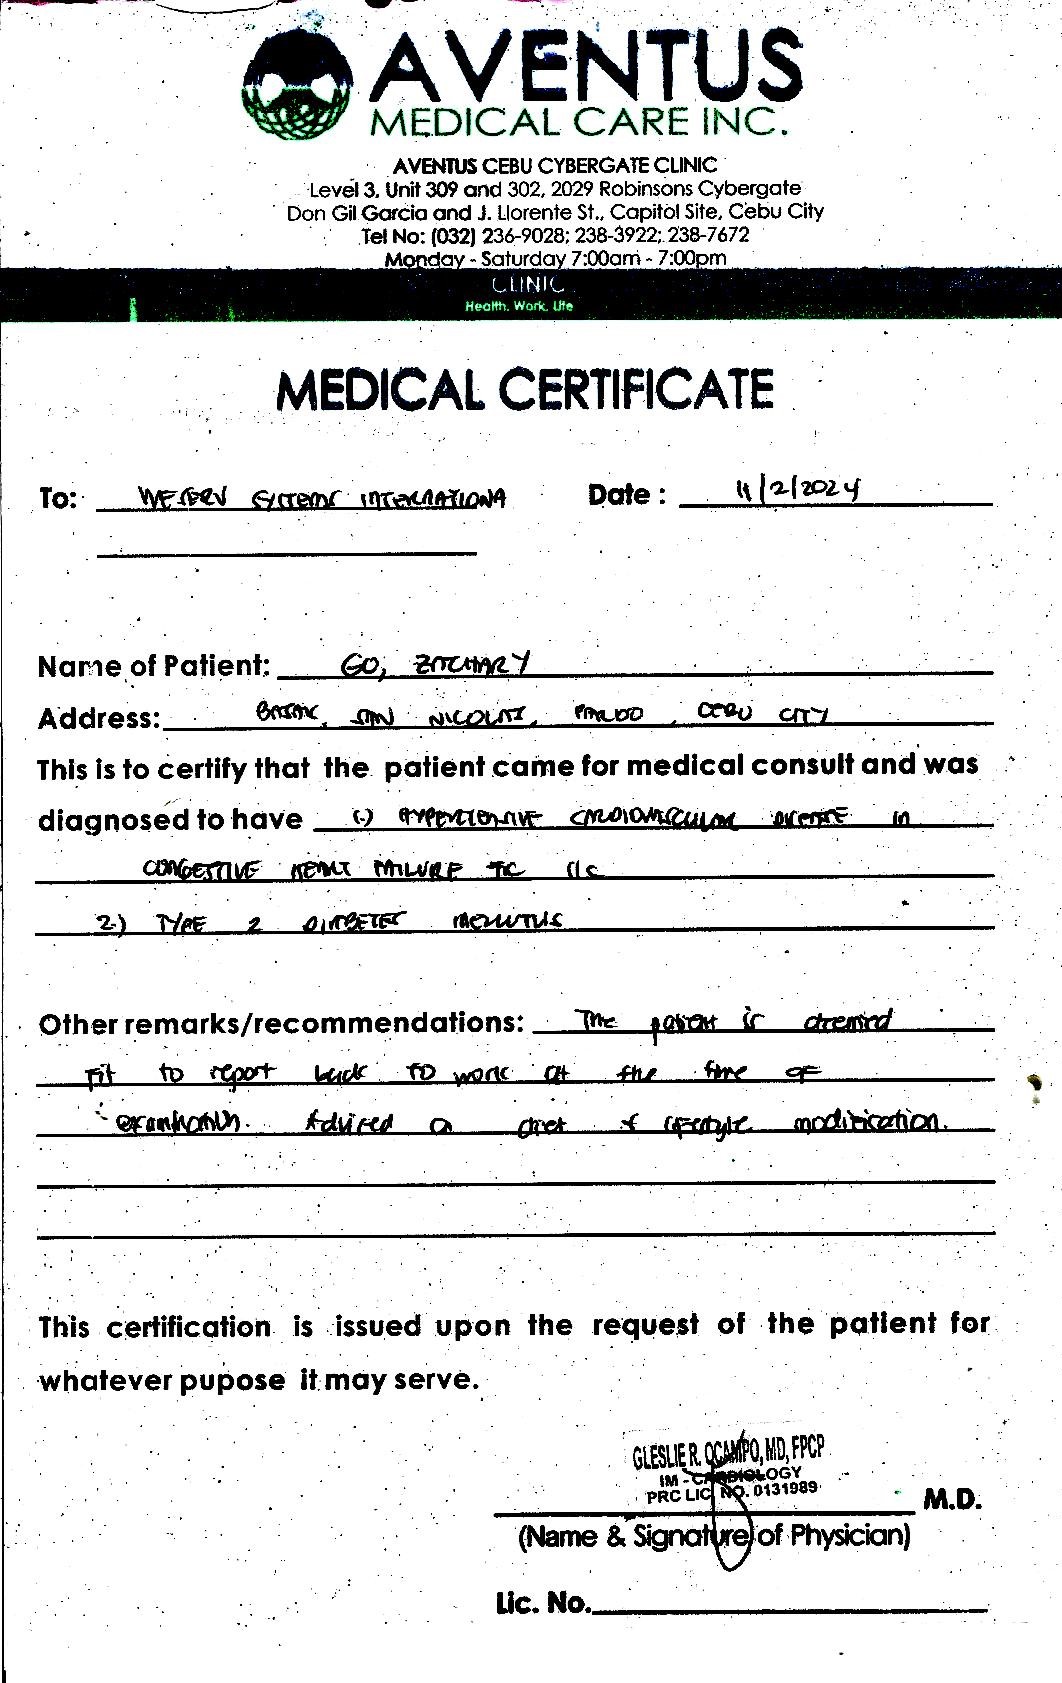 AVENTUS
MEDICAL CARE INC.
AVENTUS CEBU CYBERGATE CLINIC
Level 3, Unit 309 and 302, 2029 Robinsons Cybergate
Don Gil Garcia and J. Llorente St., Capitol Site, Cebu City
Tel No: (032) 236-9028; 238-3922; 238-7672
Monday - Saturday 7:00am - 7:00pm
CLINIC
Health. Work. Life
MEDICAL CERTIFICATE
To: WESERV SYSTEMS INTERNATIONA Date : 11/2/2024
Name of Patient: GO,
Address: SAN NICOLAS, PARDO, CEBU CITY
This is to certify that the patient came for medical consult and was
diagnosed to have 1.) HYPERTENSIVE CARDIOVASCULAR DISEASE in
CONGESTIVE HEART FAILURE FC
2.) TYPE 2 DIABETES MELLITUS
Other remarks/recommendations: The patient is deemed
Fit to report back to work at the time of
examination. Advised on diet & lifestyle modification.
This certification is issued upon the request of the patient for
whatever pupose it may serve.
GLESLIE R. OCAMPO, MD, FPCP
IM - CARDIOLOGY
PRC LIC NO. 0131989
M.D.
(Name & Signature of Physician)
Lic. No.